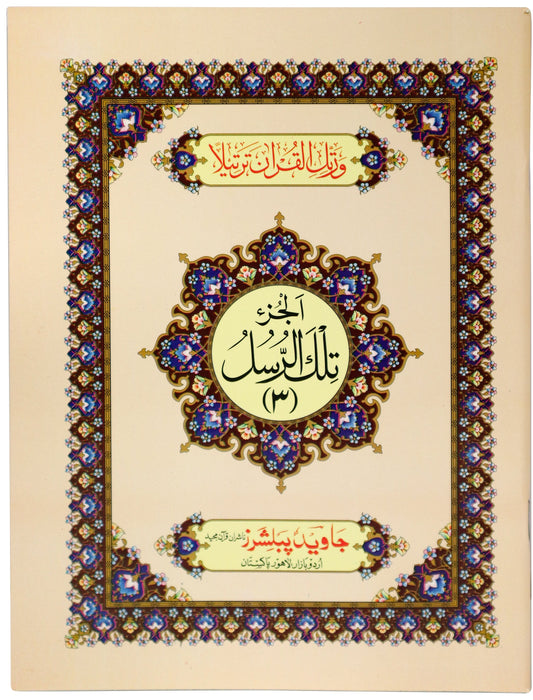 ورتل القرآن ترتیلا
الجُزء
تِلْكَ الرُّسُلُ
(۳)
جاوید پبلشرز ناشران قرآن مجید
اردو بازار لاہور پاکستان